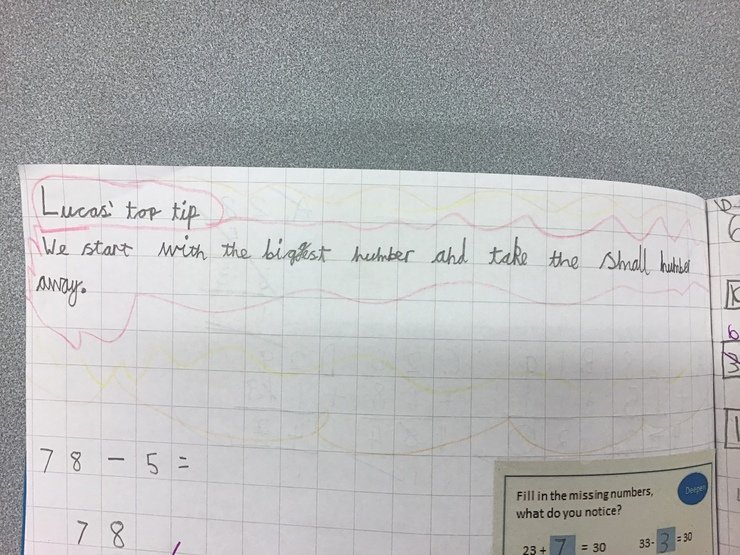 Lucas' top tip
We start with the biggest number and take the small number
away.
78 - 5 =
78
Fill in the missing numbers,
what do you notice?
Deepen
23 + 7 = 30
33- 3 = 30